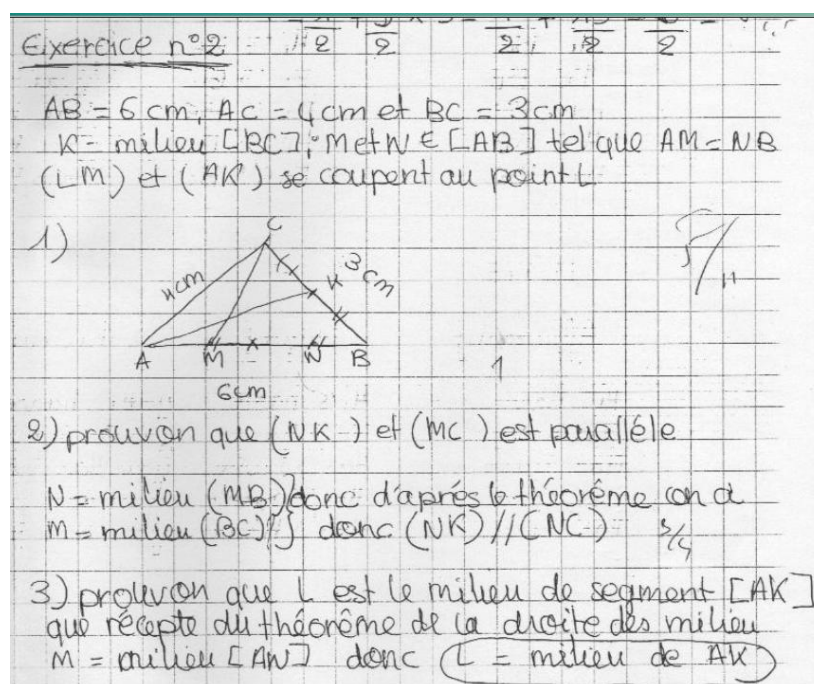 Exercice n°2
AB = 6 cm, AC = 4 cm et BC = 3 cm
K = milieu [BC], M et N ∈ [AB] tel que AM = NB
(LM) et (AK) se coupent au point L
1)
C
4cm
3 cm
K
A M N B
6cm
1
2) prouvon que (NK) et (MC) est parallèle
N = milieu (MB)} donc d'aprés le théorème on a
M = milieu (BC)} donc (NK) // (NC)
3/4
3) prouvon que L est le milieu de segment [AK]
que récepte du théorême de la droite des milieu
M = milieu [AN] donc L = milieu de AK